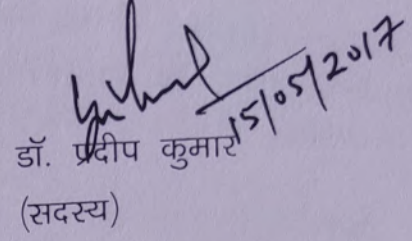 15/05/2017
डॉ. प्रदीप कुमार
(सदस्य)